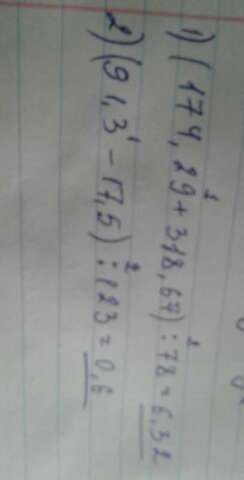 1) (174,29 + 318,67) : 78 = 6,32
2) (91,3 - 17,5) : 123 = 0,6